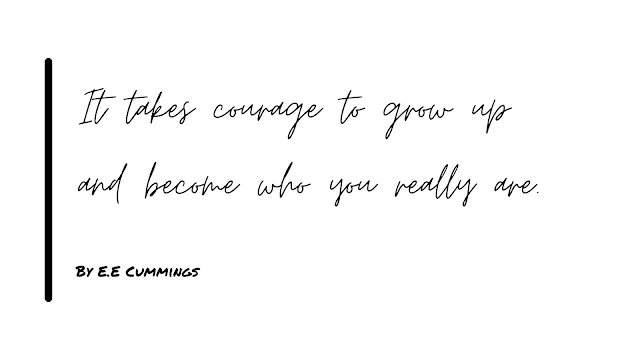 It takes courage to grow up
and become who you really are.
By E.E Cummings